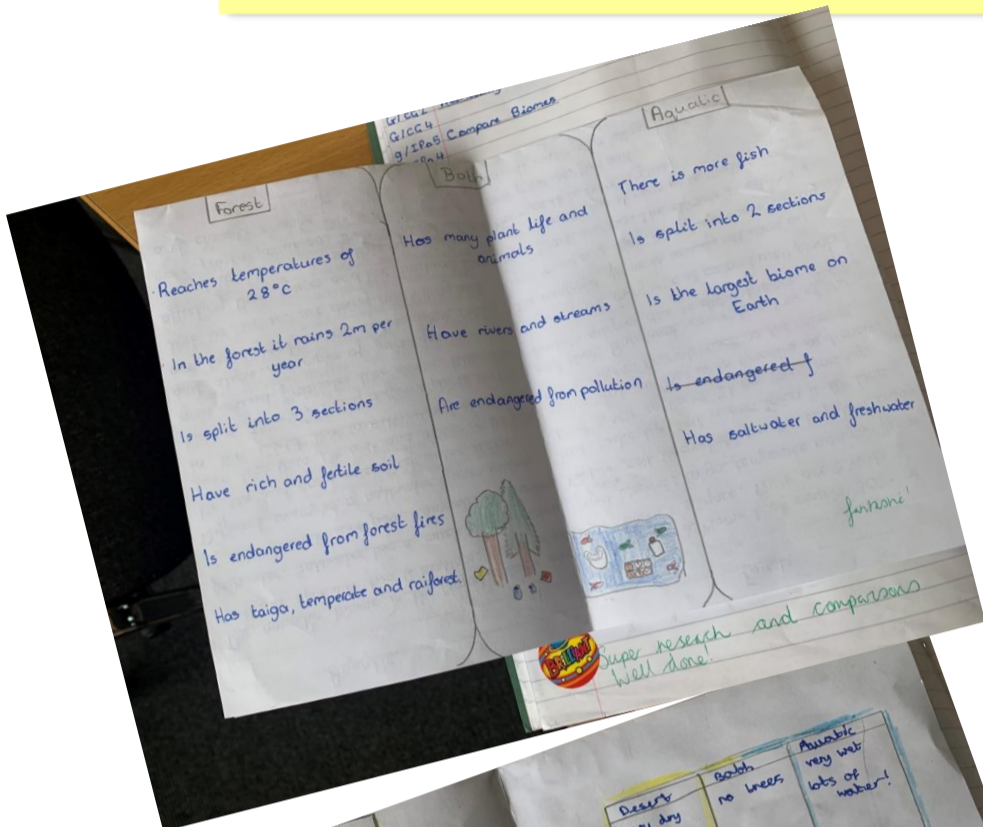 G/CG4
g/IPa5 Compare Biomes
Forest
Reaches temperatures of
28°C
In the forest it rains 2m per
year
Is split into 3 sections
Have rich and fertile soil
Is endangered from forest fires
Has taiga, temperate and raiforest.
Both
Has many plant life and
animals
Have rivers and streams
Are endangered from pollution
Aquatic
There is more fish
Is split into 2 sections
Is the largest biome on
Earth
Is endangered f
Has saltwater and freshwater
fantastic!
BRILLIANT
Super research and comparisons
Well done.
Desert
dry
Both
no trees
Aquatic
very wet
lots of
water!